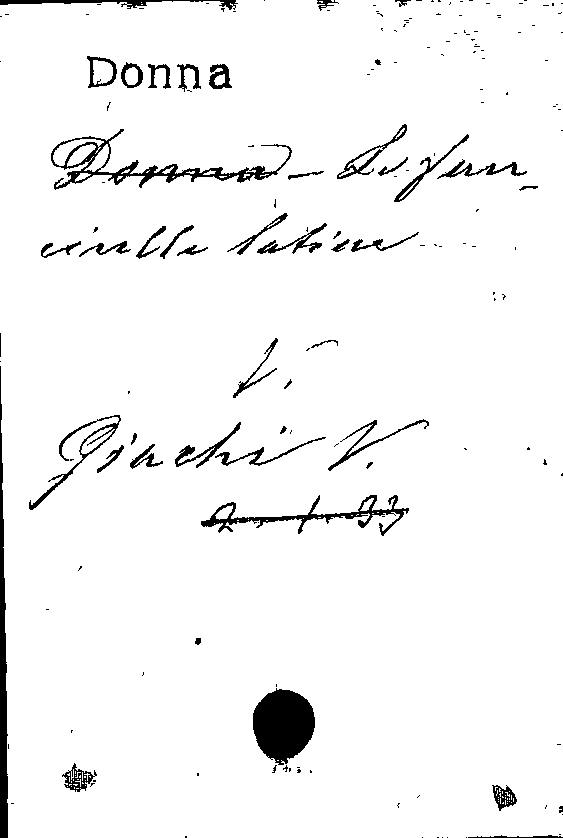 Donna
Donna - Le fan-
ciulle latine
V.
Giachi V.
2. 1. 33